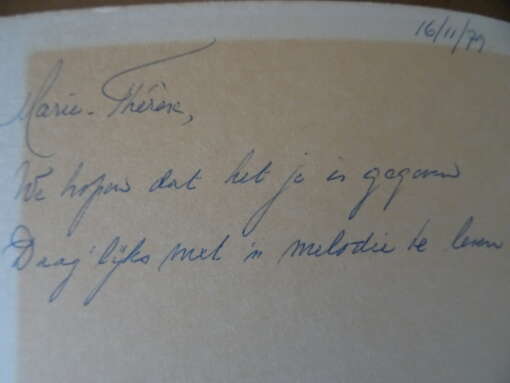 16/11/79
Marie-Thérèse,
We hopen dat het je is gegeven
Daag'lijks met 'n melodie te leven